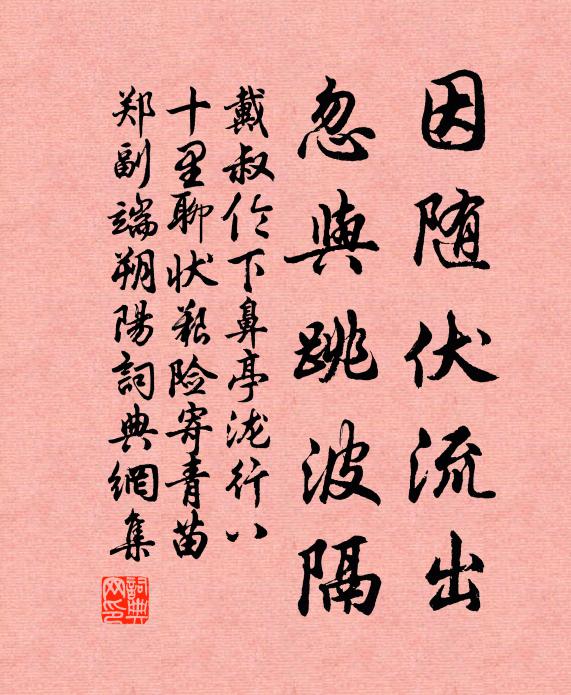 因随伏流出
忽與跳波隔
戴叔伦下鼻亭泷行八
十里聊状艰险寄青苗
郑副端朔陽詞典網集